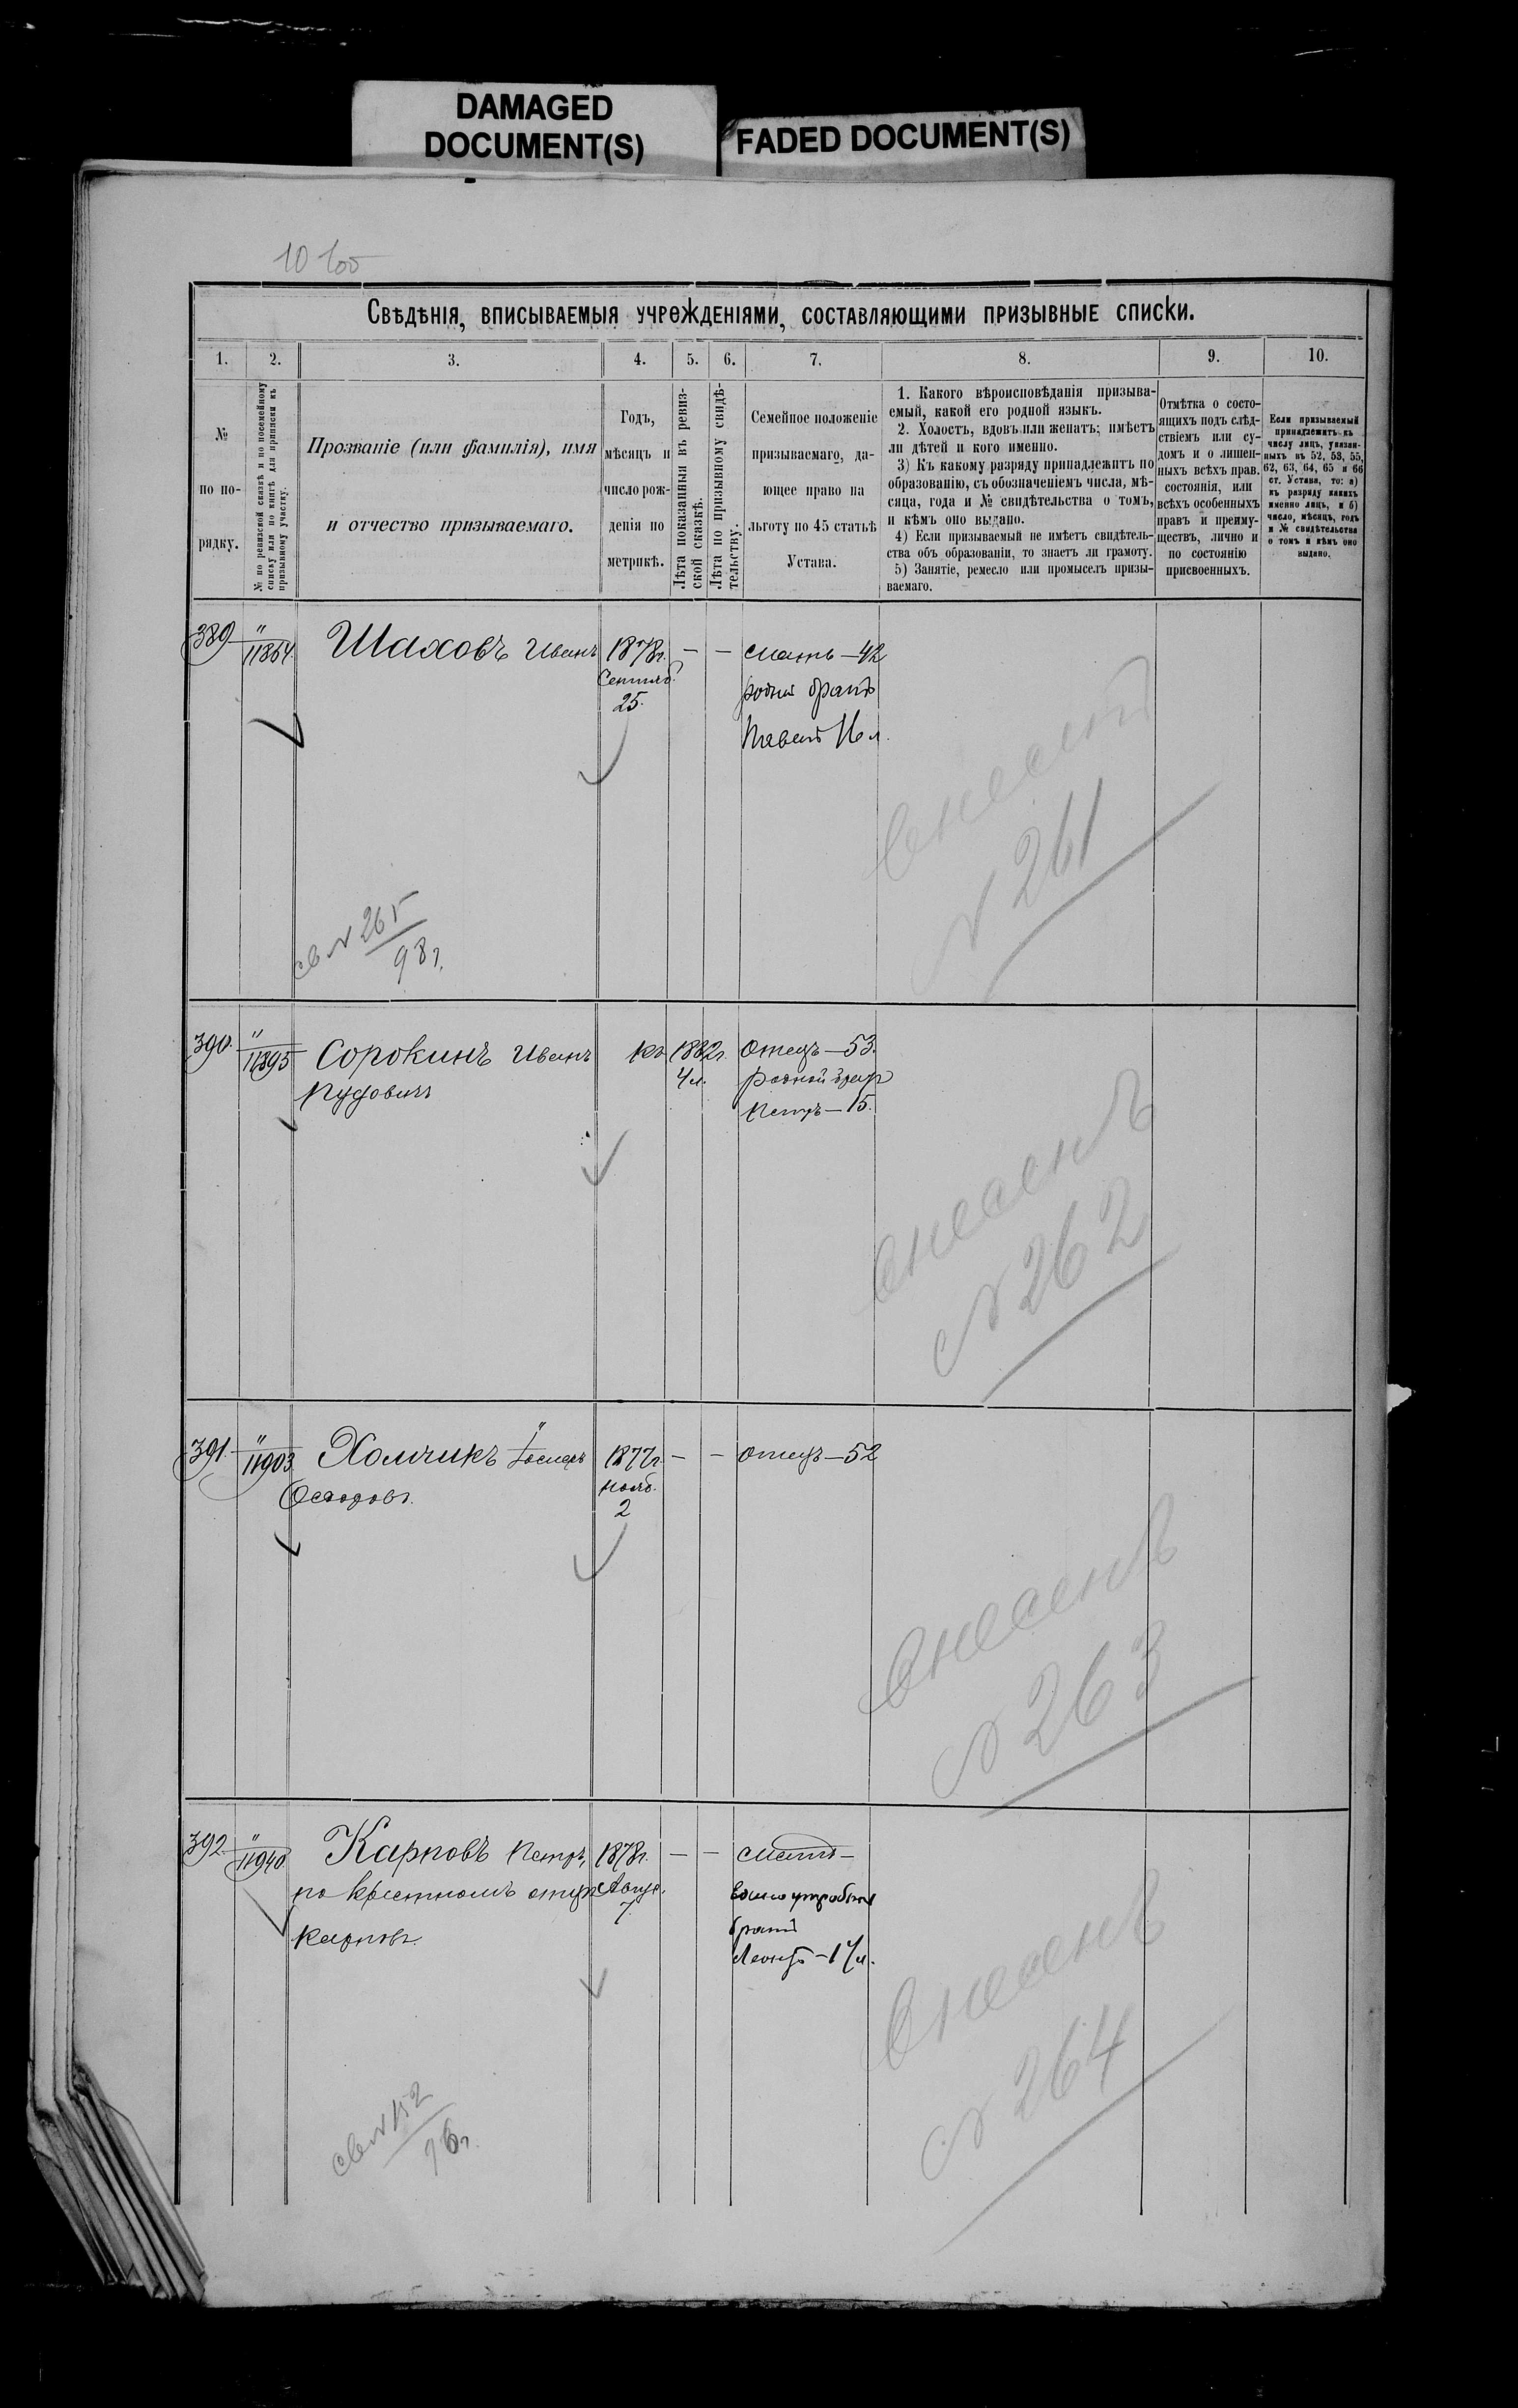 DAMAGED
DOCUMENT(S)
FADED DOCUMENT(S)
Свѣдѣнія, вписываемыя учрежденіями, составляющими призывные списки.
1. 2. 3. 4. 5. 6. 7. 8. 9. 10.
№
по по-
рядку.
№ по ревизской сказкѣ и по посемейному
списку или по книгѣ для приписки къ
призывному участку.
Прозваніе (или фамилія), имя
и отчество призываемаго.
Годъ,
мѣсяцъ и
число рож-
денія по
метрикѣ.
Лѣта показанныя въ ревиз-
ской сказкѣ.
Лѣта по призывному свидѣ-
тельству.
Семейное положеніе
призываемаго, да-
ющее право на
льготу по 45 статьѣ
Устава.
1. Какого вѣроисповѣданія призыва-
емый, какой его родной языкъ.
2. Холостъ, вдовъ или женатъ; имѣетъ
ли дѣтей и кого именно.
3) Къ какому разряду принадлежитъ по
образованію, съ обозначеніемъ числа, мѣ-
сяца, года и № свидѣтельства о томъ,
и кѣмъ оно выдано.
4) Если призываемый не имѣетъ свидѣтель-
ства объ образованіи, то знаетъ ли грамоту.
5) Занятіе, ремесло или промыселъ призы-
ваемаго.
Отмѣтка о состо-
ящихъ подъ слѣд-
ствіемъ или су-
домъ и о лишен-
ныхъ всѣхъ прав.
состоянія, или
всѣхъ особенныхъ
правъ и преиму-
ществъ, лично и
по состоянію
присвоенныхъ.
Если призываемый
принадлежитъ къ
числу лицъ, указан-
ныхъ въ 52, 53, 55,
62, 63, 64, 65 и 66
ст. Устава, то: а)
къ разряду какихъ
именно лицъ, и б)
число, мѣсяцъ, годъ
и № свидѣтельства
о томъ и кѣмъ оно
выдано.
389 " 11864 Шаховъ Иванъ 1878г. — — мать—42
Сентяб. родн братъ
25. Павелъ 16 л.
внесенъ
№ 261
св № 265
98 г.
390. " 11895 Сорокинъ Иванъ 1882г. Отецъ—53.
4 л. родной братъ
Петръ—15.
внесенъ
№ 262
391. " 11903 Хомчикъ Іосифъ 1877г. — — отецъ—52
нояб.
2
внесенъ
№ 263
392. " 11940 Карповъ Петръ, 1878г. — — мать—
по крестномъ отцѣ Авгус.
Карповъ. 7.
единоутробный
братъ
внесенъ
№ 264
св № 152